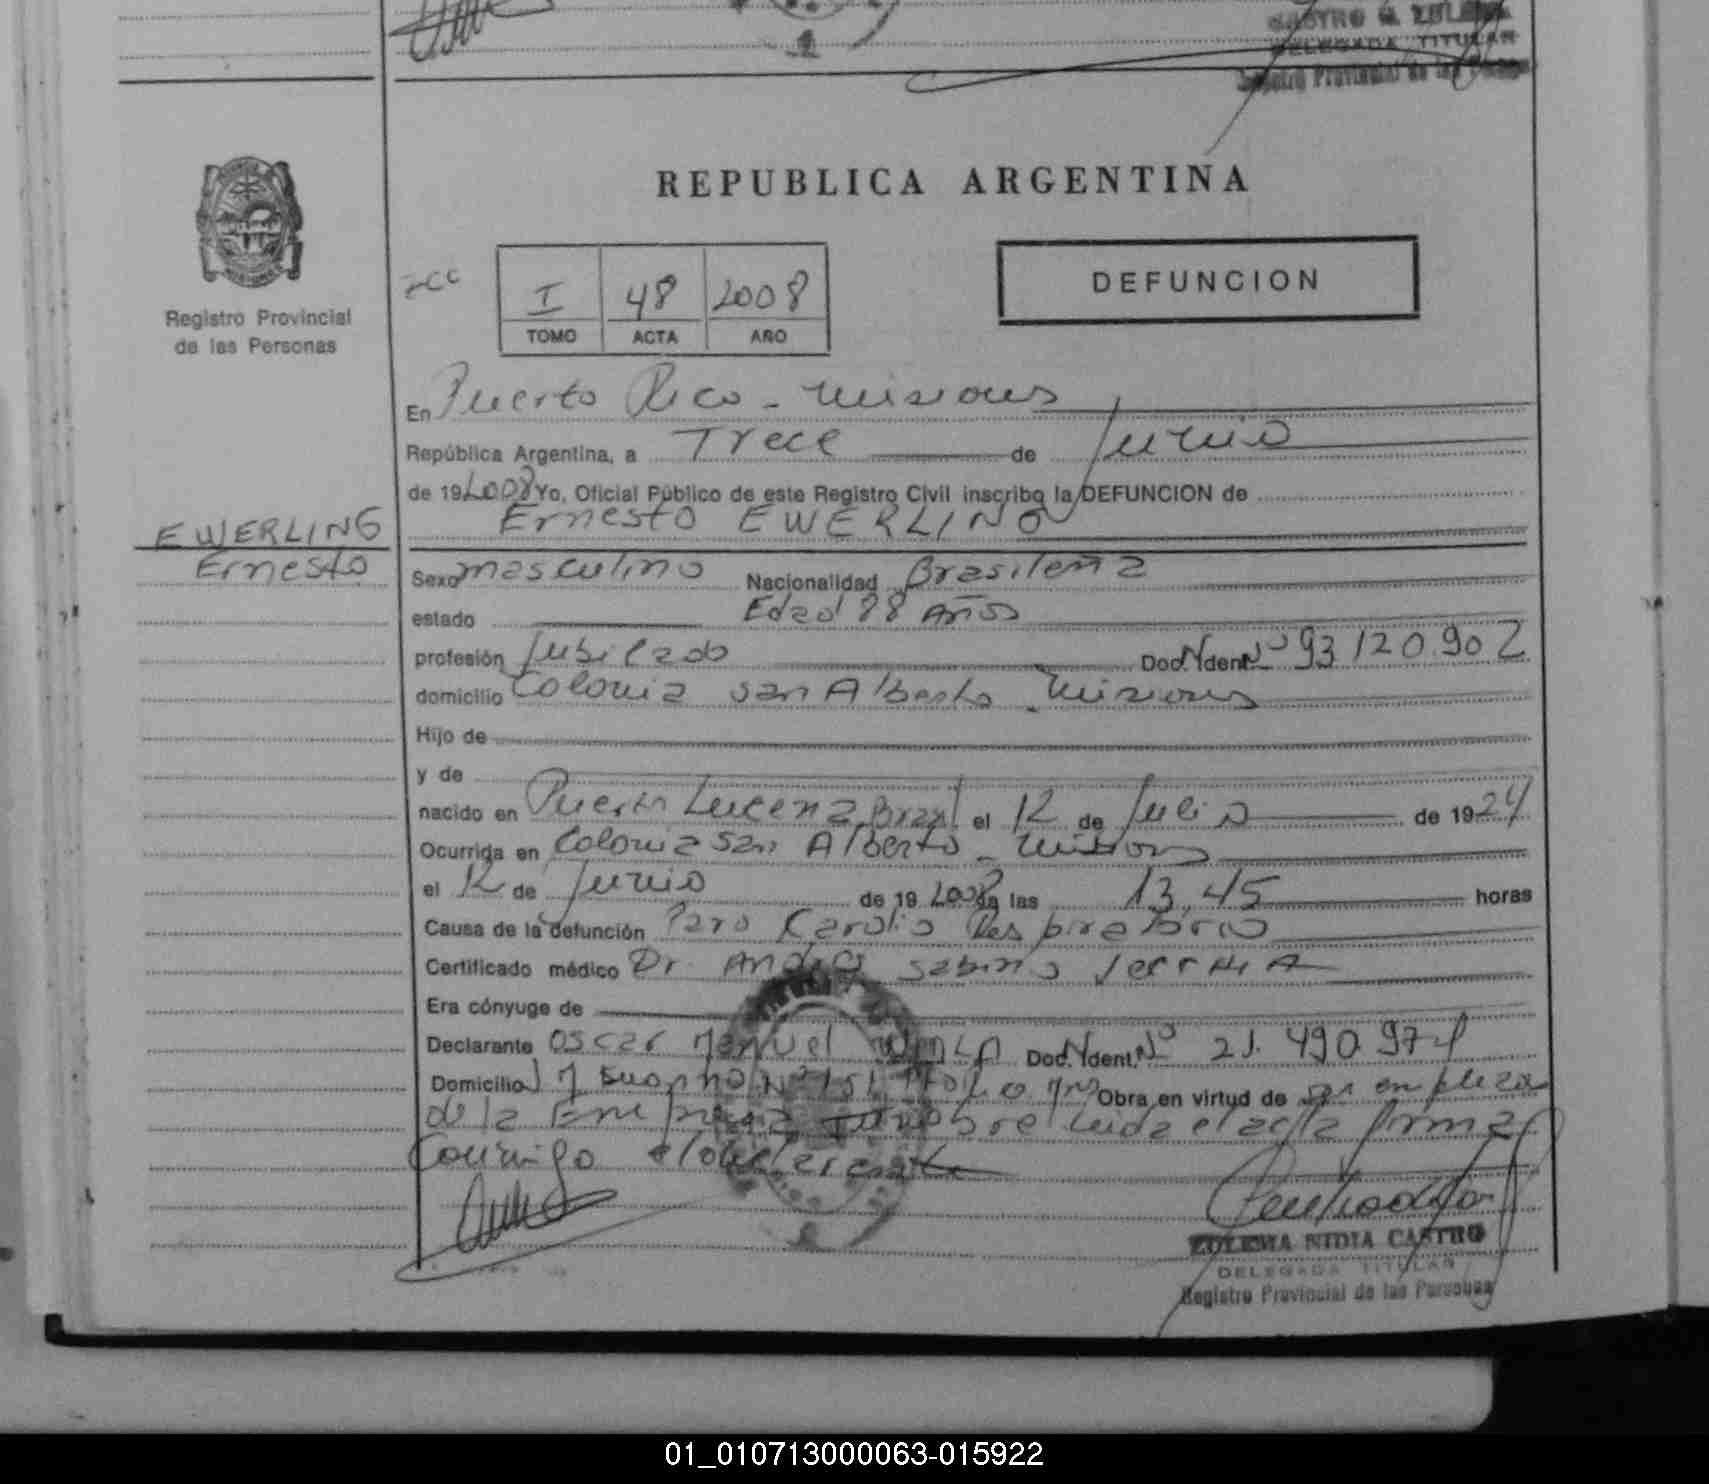 CASTRO
DELEGADA TITULAR
Registro Provincial de las Personas
REPUBLICA ARGENTINA
Registro Provincial
de las Personas
I 48 2008
TOMO ACTA AÑO
DEFUNCION
En Puerto Rico - Misiones
República Argentina, a Trece de Junio
de 19 2008 Yo, Oficial Público de este Registro Civil inscribo la DEFUNCION de
EWERLING
Ernesto
Ernesto EWERLING
Sexo masculino Nacionalidad Brasileña
estado Edad 88 Años
profesión Jubilado Doc. Ident. Nº 93.120.902
domicilio Colonia San Alberto - Misiones
Hijo de
y de
nacido en Puerto Lucena Brasil el 12 de Julio de 1924
Ocurrida en Colonia San Alberto - Misiones
el 12 de Junio de 19 2008 a las 13,45 horas
Causa de la defunción Paro Kardio Respiratorio
Certificado médico Dr. Sabino
Era cónyuge de
Declarante Oscar Manuel Doc. Ident. Nº 21.490.974
Domicilio Obra en virtud de ser empleado
de la Empresa Funebre Leida el acta firma
Conmigo el declarante
ZULEMA NIDIA CASTRO
DELEGADA TITULAR
Registro Provincial de las Personas
01_010713000063-015922